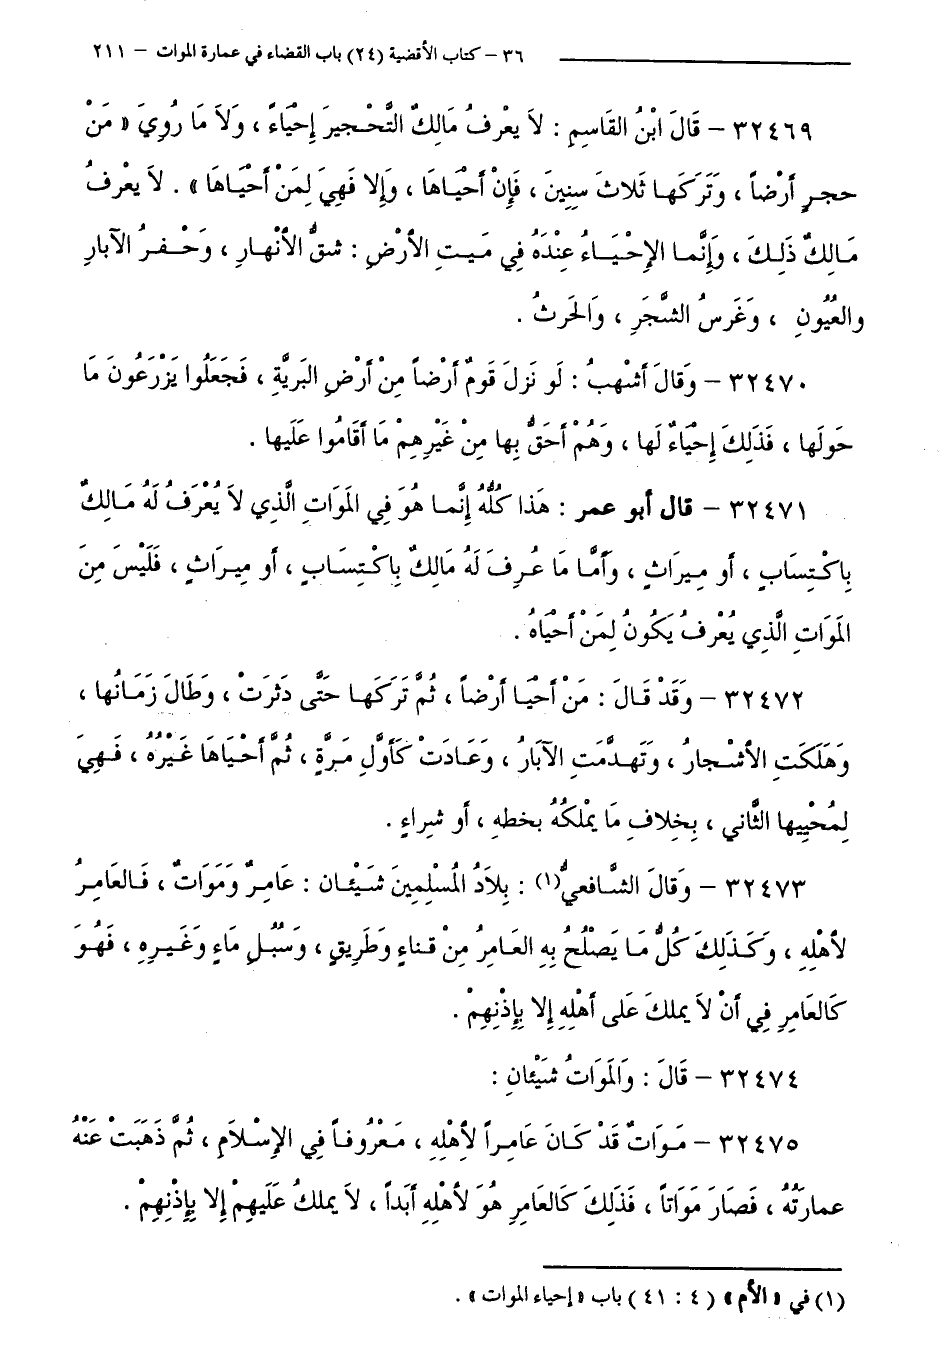 ٣٦ – كتاب الأقضية (٢٤) باب القضاء في عمارة الموات – ٢١١
٣٢٤٦٩ – قَالَ ابْنُ القَاسِمِ : لاَ يعْرفُ مَالِكٌ التَّحْجيرَ إِحْيَاءً ، وَلاَ مَا رُوِيَ « مَنْ
حجرِ أَرْضاً ، وَتَرَكَهَا ثَلاثَ سِنِينَ ، فَإِنْ أَحْيَاهَا ، وَإِلا فَهِيَ لِمَنْ أَحْيَاهَا » . لاَ يعْرفُ
مَالِكٌ ذَلِكَ ، وَإِنَّما الإِحْيَاءُ عِنْدَهُ فِي مَيتِ الأَرْضِ : شقُّ الأَنْهارِ ، وَحْفرُ الآبارِ
والعُيُونِ ، وَغَرسُ الشَّجَرِ ، وَالحَرثُ .
٣٢٤٧٠ – وَقَالَ أَشْهبُ : لَو نَزلَ قَومٌ أَرْضاً مِنْ أَرْضِ البَريَّةِ ، فَجَعَلُوا يَزْرَعُونَ مَا
حَولَها ، فَذَلِكَ إِحْيَاءٌ لَها ، وَهُمْ أَحَقُّ بِها مِنْ غَيْرِهِمْ مَا أَقَامُوا عَلَيها .
٣٢٤٧١ – قال أبو عمر : هَذا كُلُّهُ إِنَّما هُوَ فِي المَوَاتِ الَّذي لاَ يُعْرَفُ لَهُ مَالِكٌ
بِاكْتِسَابٍ ، أَو مِيرَاثٍ ، وَأَمَّا مَا عُرِفَ لَهُ مَالِكٌ بِاكْتِسَابٍ ، أَو مِيرَاثٍ ، فَلَيْسَ مِنَ
المَوَاتِ الَّذِي يُعْرفُ يَكُونُ لِمَنْ أَحْيَاهُ .
٣٢٤٧٢ – وَقَدْ قَالَ : مَنْ أَحيَا أَرْضاً ، ثُمَّ تَركَها حَتَّى دَثرَتْ ، وَطَالَ زَمَانُها ،
وَهَلَكَتِ الأَشْجارُ ، وَتَهدَّمَتِ الآبَارُ ، وَعَادَتْ كَأَوَّلِ مَرَّةٍ ، ثُمَّ أَحْيَاهَا غَيْرُهُ ، فَهِيَ
لِمُحْيِيها الثَّانِي ، بِخِلافِ مَا يمْلكُهُ بخطهِ ، أَو شِراءٍ .
٣٢٤٧٣ – وَقَالَ الشَّافعيُّ(١) : بِلاَدُ المُسْلِمِينَ شَيْئَان : عَامِرٌ وَمَوَاتٌ ، فَالعَامِرُ
لأَهْلِهِ ، وَكَذَلِكَ كُلُّ مَا يَصْلُحُ بِهِ العَامِرُ مِنْ قناءٍ وَطَرِيقٍ ، وَسُبُلِ مَاءٍ وَغَيرِهِ ، فَهُوَ
كَالعَامِرِ فِي أَنْ لاَ يملكَ عَلى أَهْلِهِ إِلا بِإِذْنِهِمْ .
٣٢٤٧٤ – قَالَ : وَالمَوَاتُ شَيْئَانِ :
٣٢٤٧٥ – مَوَاتٌ قَدْ كَانَ عَامِراً لأَهْلِهِ ، مَعْرُوفاً فِي الإِسْلاَمِ ، ثُمَّ ذَهَبَتْ عَنْهُ
عمارَتُهُ ، فَصَارَ مَوَاتاً ، فَذَلِكَ كَالعَامِرِ هُوَ لأَهْلِهِ أَبَداً ، لاَ يملكُ عَلَيهِمْ إِلا بِإِذْنِهِمْ .
(١) في « الأم » (٤ : ٤١) باب « إحياء الموات » .